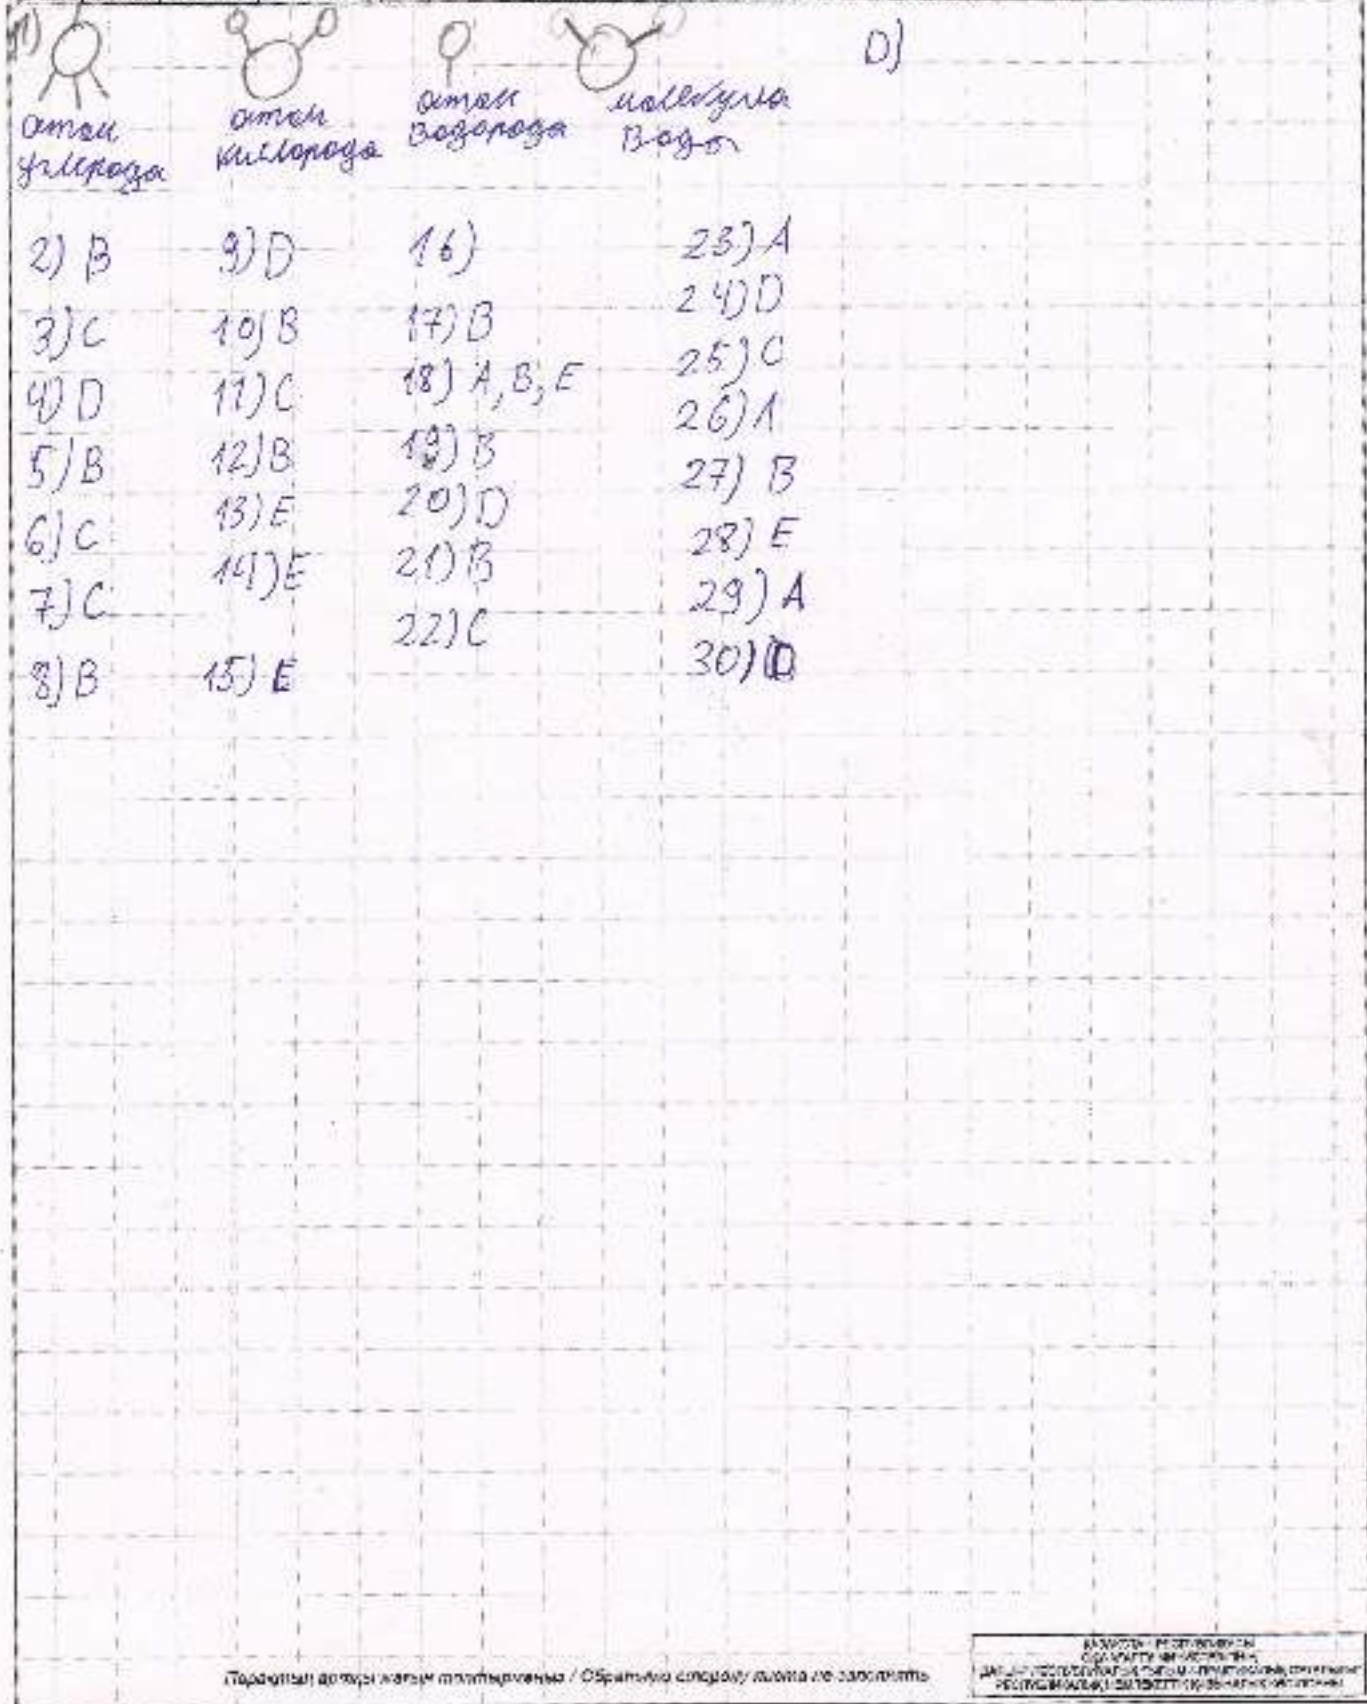 1)
D)
атом углерода
атом кислорода
атом водорода
молекула воды
2) B
3) C
4) D
5) B
6) C
7) C
8) B
9) D
10) B
11) C
12) B
13) E
14) E
15) E
16)
17) B
18) A, B, E
19) B
20) D
21) B
22) C
23) A
24) D
25) C
26) A
27) B
28) E
29) A
30) D
Парақтың артқы жағын толтырмаңыз / Обратную сторону листа не заполнять
ҚАЗАҚСТАН РЕСПУБЛИКАСЫ